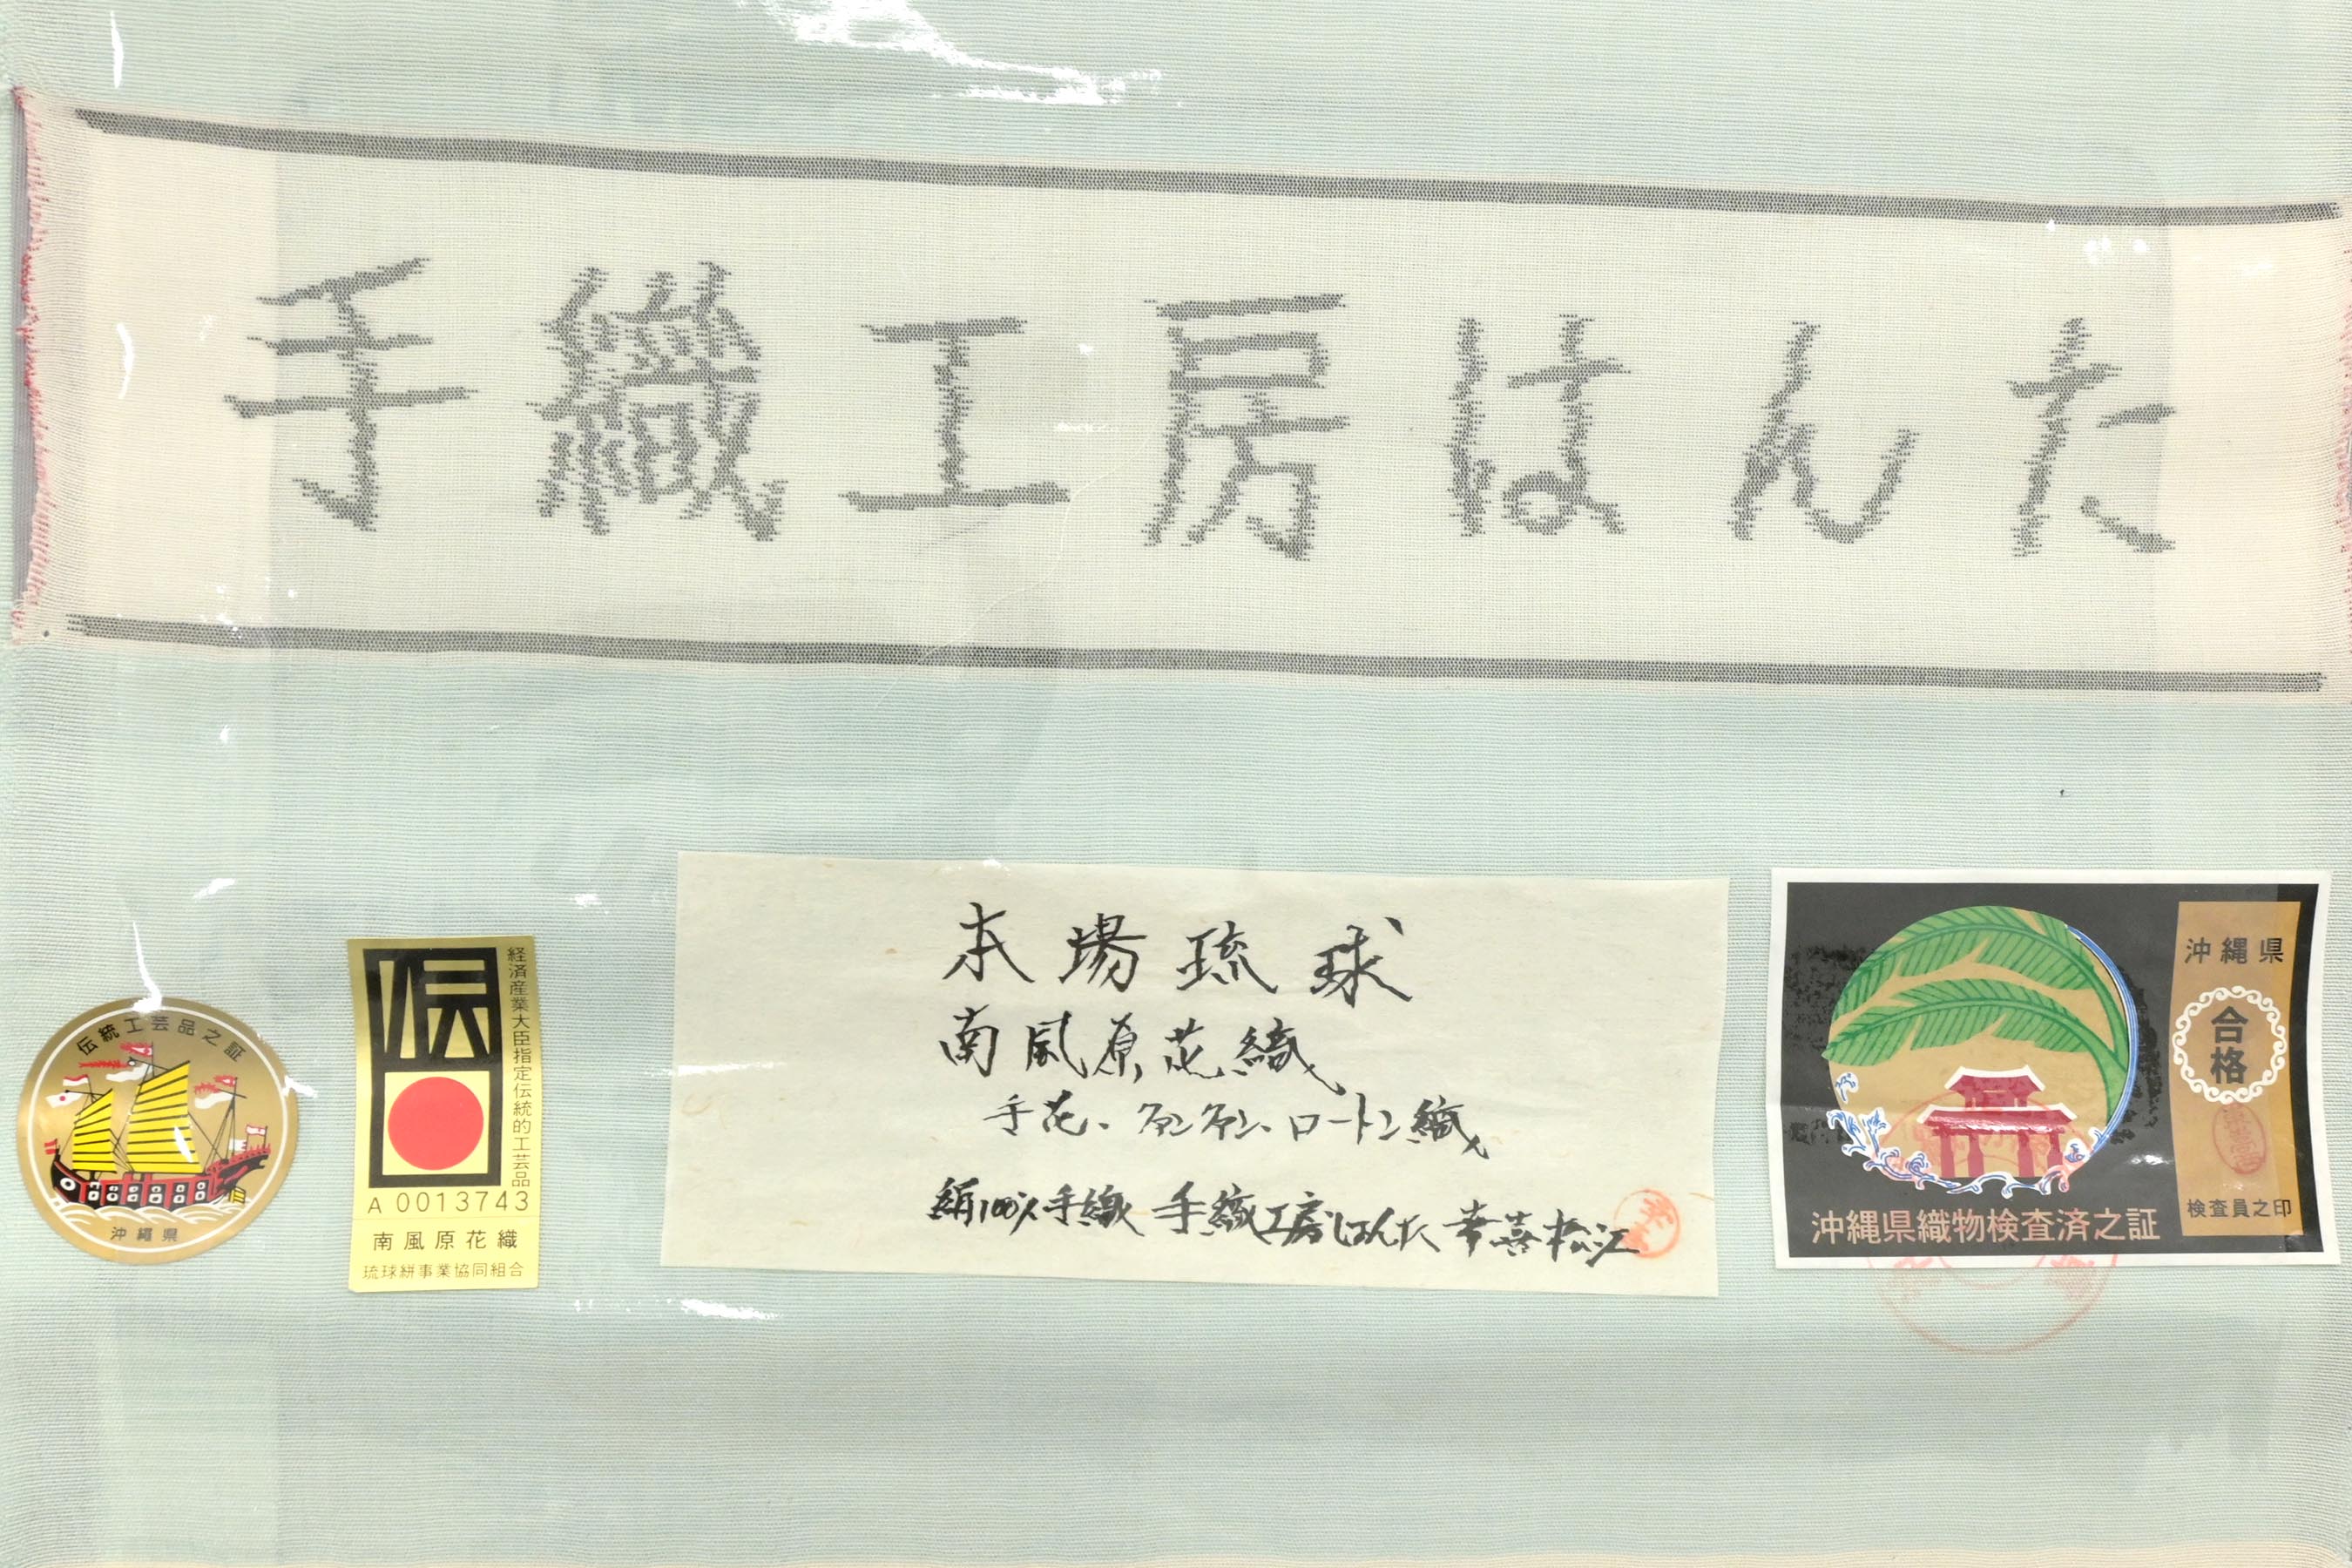 手織工房はんた
伝統工芸品之証
沖縄県
伝
経済産業大臣指定伝統的工芸品
A 0013743
南風原花織
琉球絣事業協同組合
本場琉球
南風原花織
手花、クァンクァン、ロートン織
絹100%手織 手織工房はんた 幸喜松江
沖縄県
合格
検査員之印
沖縄県織物検査済之証